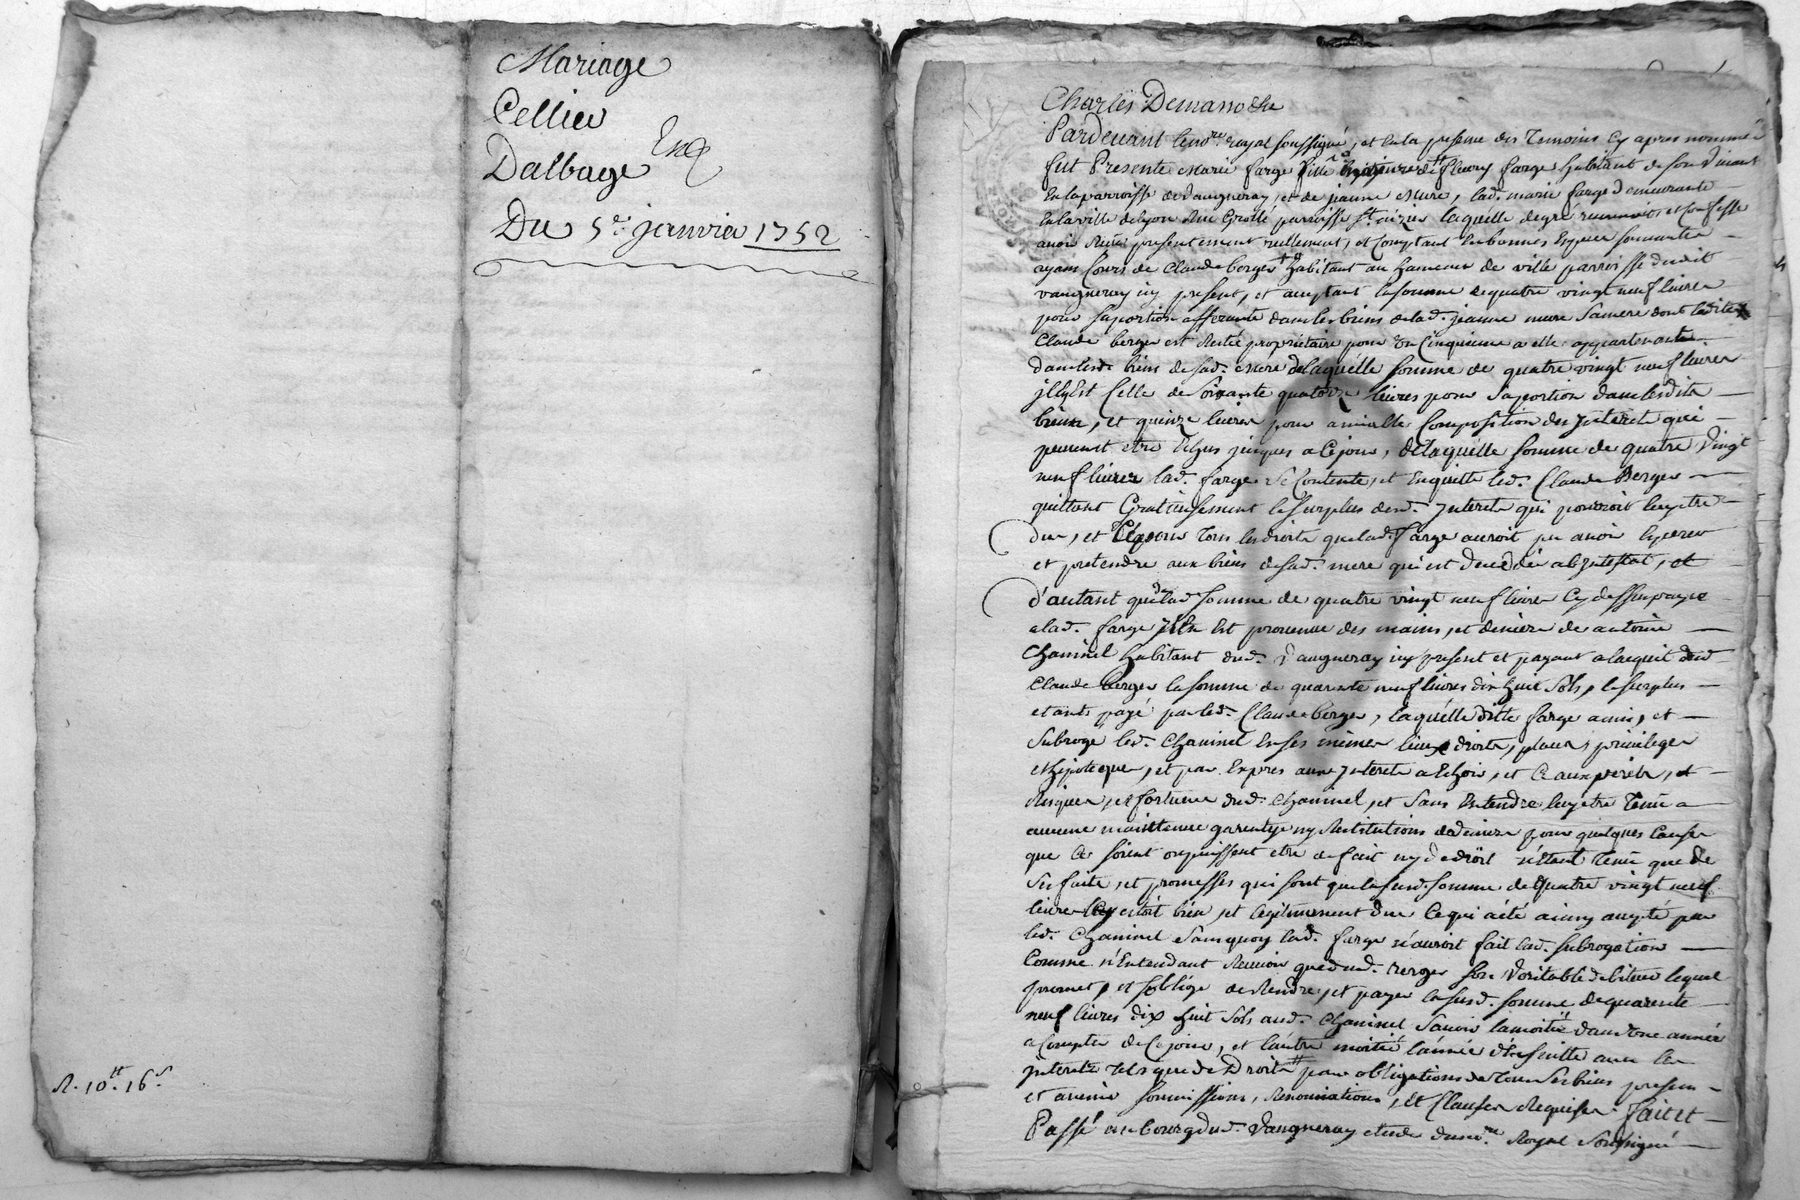 Mariage
Cellier
Dalbage Exp
Du 5e janvier 1752
R. 10tt. 16s
Charles Demanoche
Pardevant le nore royal soussigné, et en la presence des Temoins Cy apres nommés
fut Presente Marie farge fille de fleury farge habitant de son vivant
En la parroisse de Vaugneray, et de jeanne mure, lad. marie farge demeurante
En la ville de Lyon Rue Grolle parroisse st. nizier laquelle de gré reconnoit et Confesse
avoir Receu presentement reellement, et Comptant En bonnes Especes sonnantes
ayant Cours de Claude berger habitant au hameau de ville parroisse dudit
vaugneray icy present, et acceptant la somme de quatre vingt neuf livres
pour sa portion afferante dans les biens de lad. jeanne mure sa mere dont ledit
Claude berger est Resté propriétaire pour Un Cinquieme a elle appartenante
dans lesd. biens de sad. mere de laquelle somme de quatre vingt neuf livres
il y Est Celle de soixante quatorze livres pour sa portion dans lesdits
biens, et quinze livres pour amiable Composition des Interets qui
peuvent etre Echus jusques a Ce jour, de laquelle somme de quatre vingt
neuf livres lad. farge se Contente, et En quitte led. Claude Berger
quittant Gratuitement le surplus desd. Interets qui pourroit luy etre
du, et tous les droits que lad. farge auroit pu avoir Esperer
et pretendre aux biens de sad. mere qui est decedée ab Intestat, et
d'autant que de lad. somme de quatre vingt neuf livres Cy dessus payée
a lad. farge Il En Est provenue des mains, et deniers de antoine
Chaninel habitant dud. Vaugneray icy present et payant a l'acquit dud.
Claude berger la somme de quarante neuf livres dix huit sols, le surplus
etant payé par led. Claude berger, laquelle ditte farge a mis, et
subroge led. Chaninel En ses mêmes lieux droits, place, privileges
et hipoteque, et par Expres aux Interets a Echoir, et Ce aux perils, et
Risques, et fortune dud. Chaninel, et sans Entendre luy etre Tenue a
aucune maintenue garentye ny Restitutions de deniers pour quelques Causes
que Ce soient ou puissent etre de fait ny de droit n'étant Tenue que de
ses faits, et promesses qui sont que la susd. somme de quatre vingt neuf
livres luy estoit bien, et legitimement due Ce qui a été ainsy accepté par
led. Chaninel sans quoy lad. farge n'auroit fait lad. subrogation
Comme n'Entendant Revenir que dud. berger son Veritable debiteur lequel
promet, et s'oblige de Rendre, et payer la susd. somme de quarente
neuf livres dix huit sols aud. Chaninel sçavoir la moitié dans Une année
a Compter de Ce jour, et l'autre moitié l'année d'En suitte avec les
Interets tels que de Droits pour obligations de tous ses biens presens
et avenir soumissions, Renonciations, Et Clauses Requises fait et
Passé au bourg dud. Vaugneray etude dud. nore. Royal soussigné